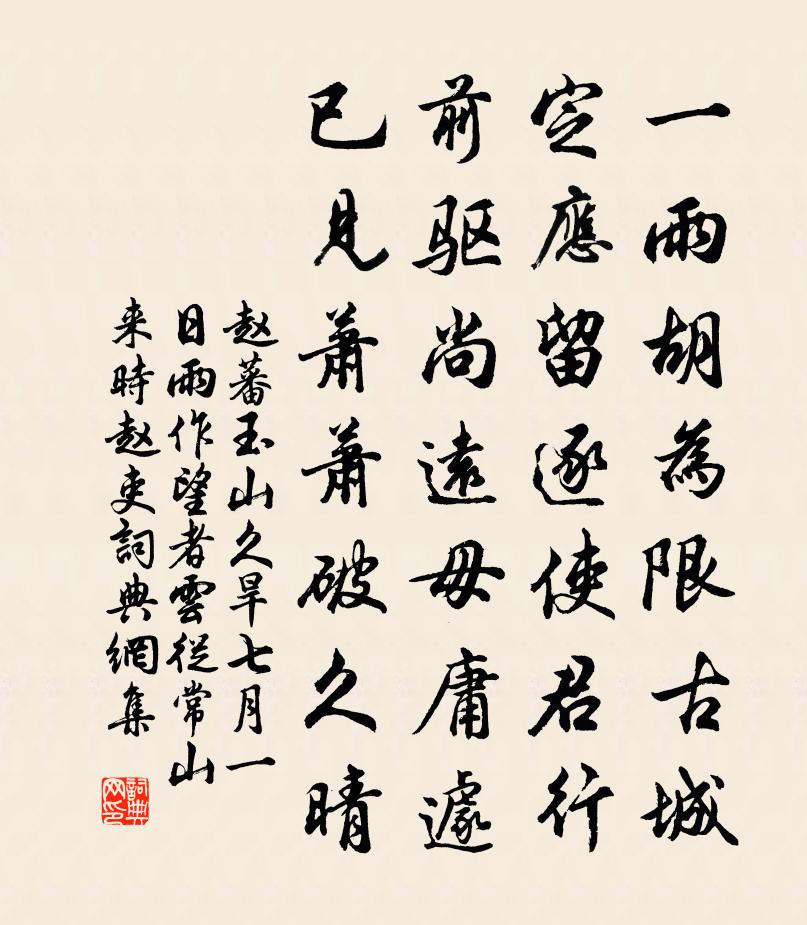 一雨胡為限古城
定應留逐使君行
前驱尚遠毋庸遽
已見蕭蕭破久晴
赵蕃玉山久旱七月一
日雨作望者雲從常山
来時赵吏詞典網集
詞典
网印